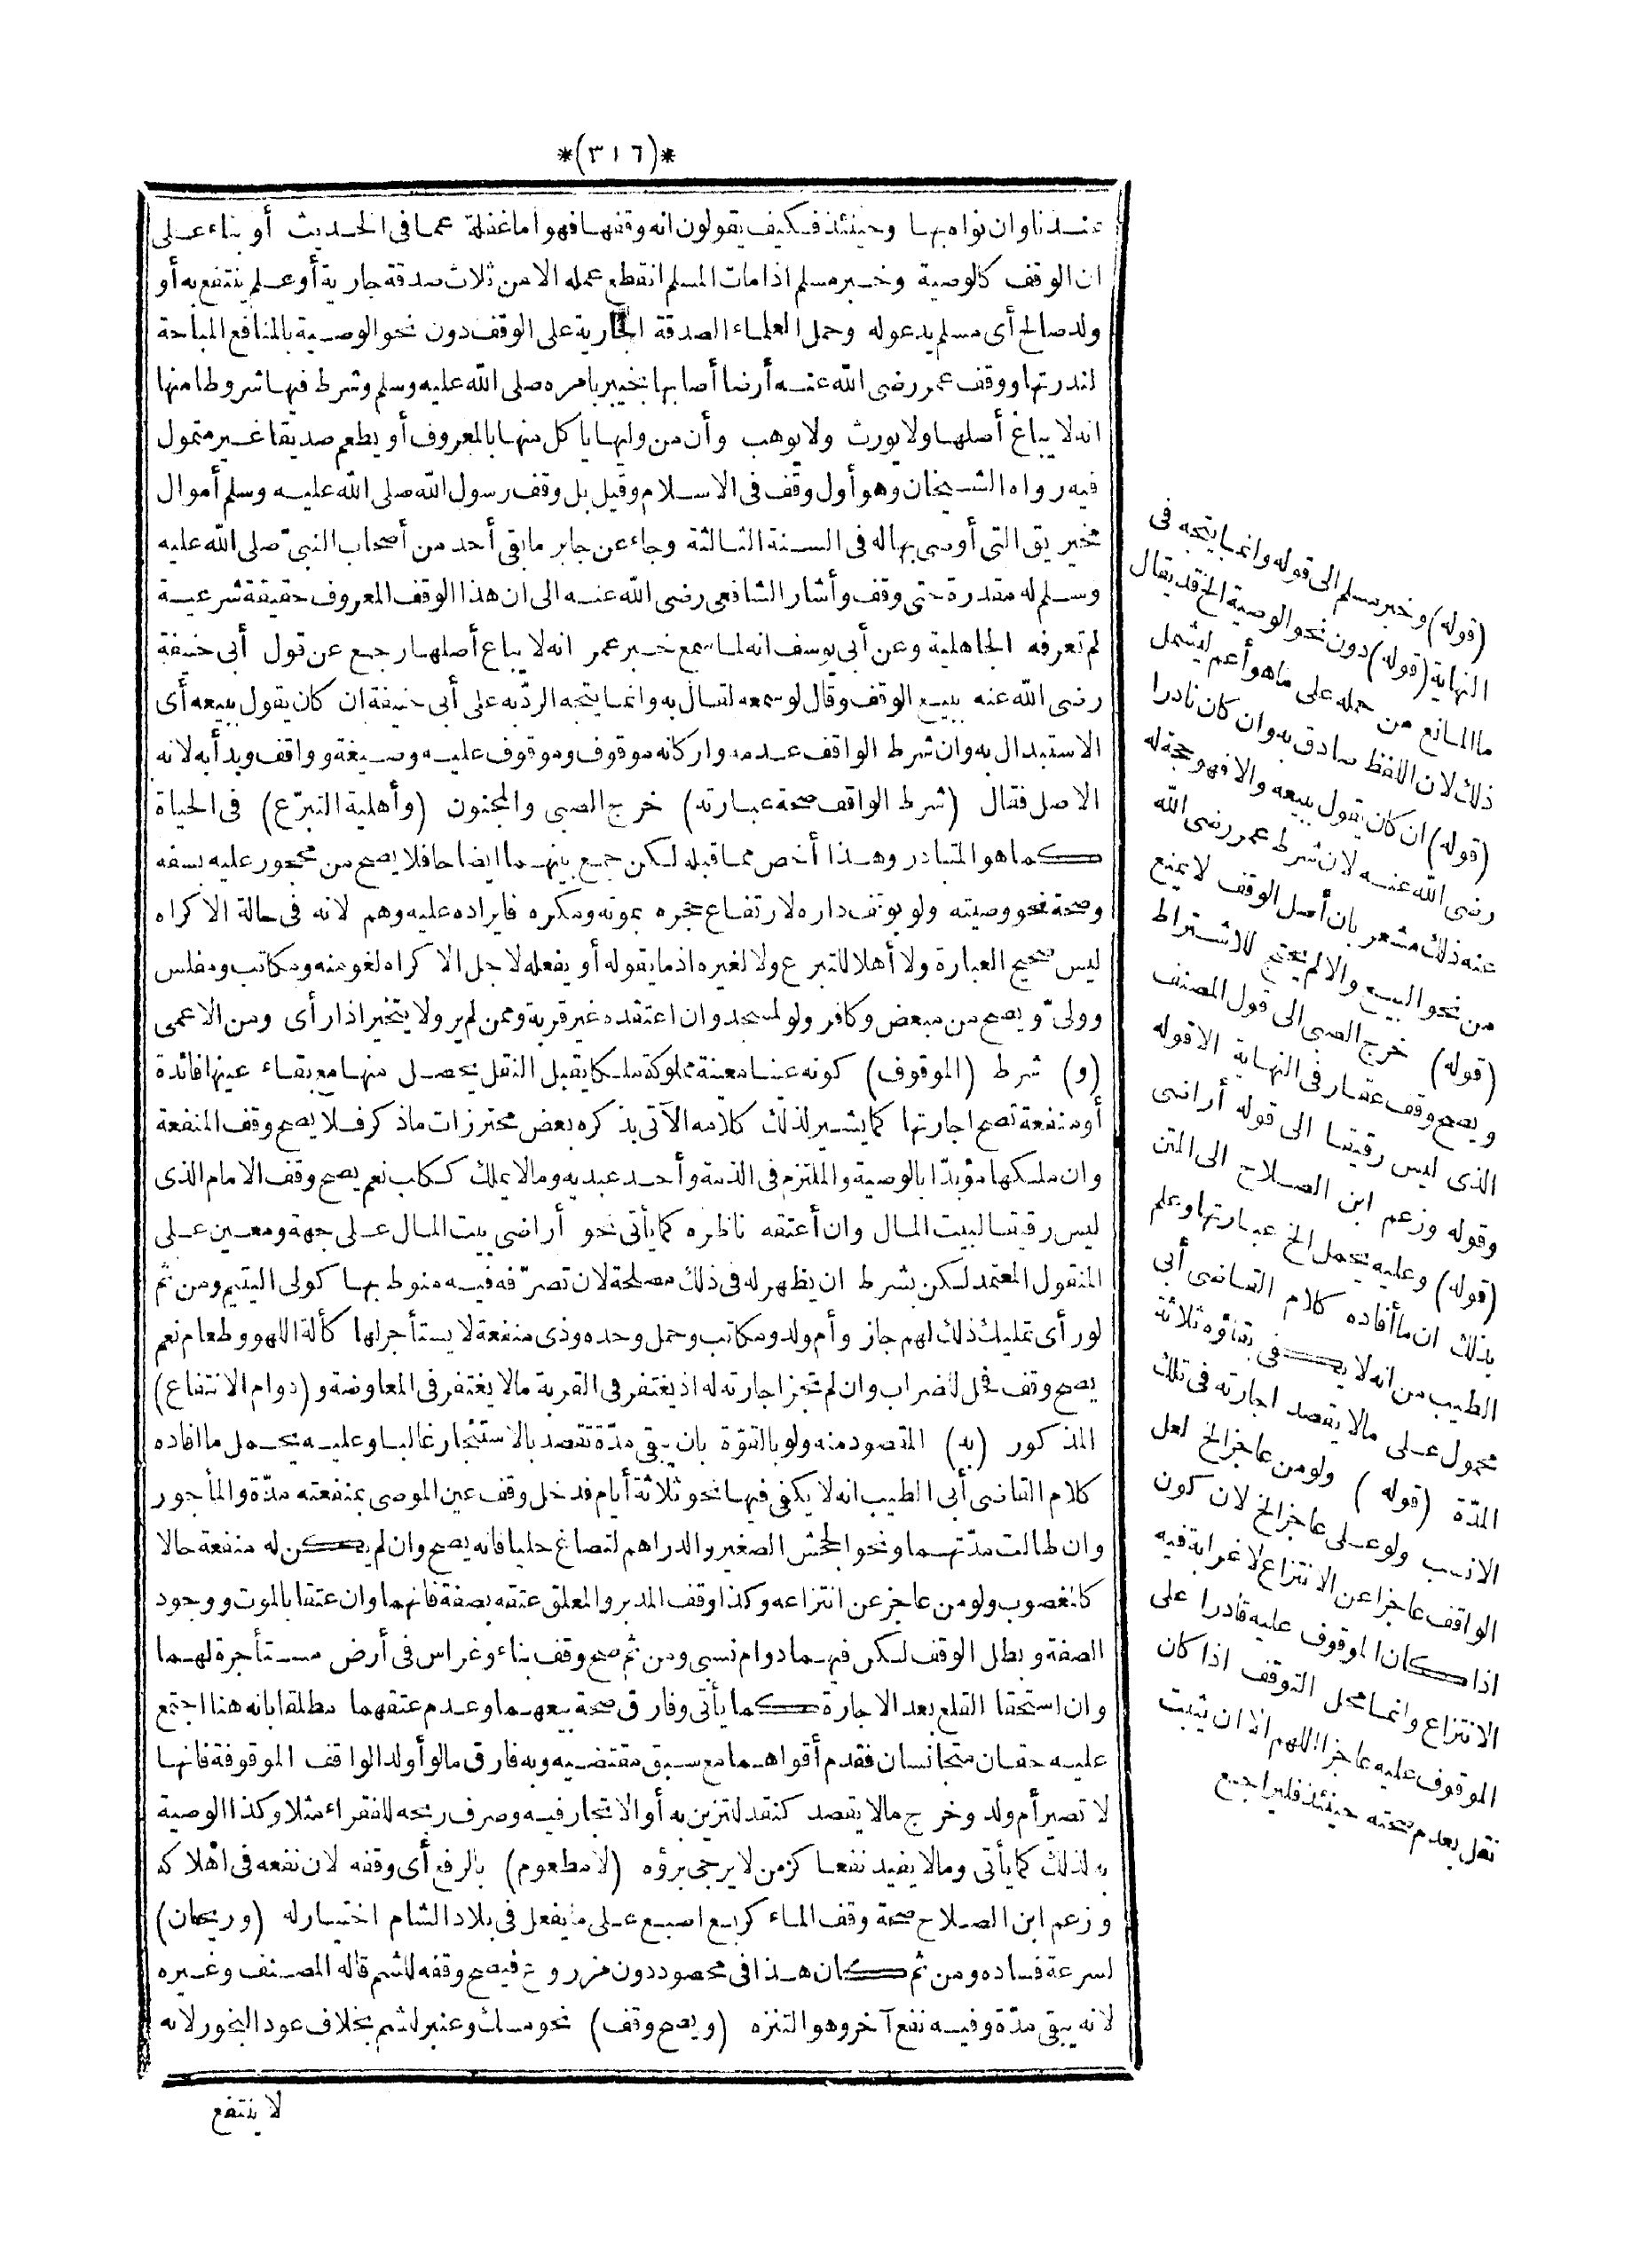 *(٣١٦)*
عندنا وان نواه بها وحينئذ فكيف يقولون انه وقفها فهو اما غفلة عما فى الحديث أو بناء على
ان الوقف كالوصية وخبر مسلم اذا مات المسلم انقطع عمله الا من ثلاث صدقة جارية أو علم ينتفع به أو
ولد صالح أى مسلم يدعو له وحمل العلماء الصدقة الجارية على الوقف دون نحو الوصية بالمنافع المباحة
لندرتها ووقف عمر رضى الله عنه أرضا أصابها بخيبر بامره صلى الله عليه وسلم وشرط فيها شروطا منها
انه لا يباع أصلها ولا يورث ولا يوهب وأن من وليها يا كل منها بالمعروف أو يطعم صديقا غير متمول
فيه رواه الشيخان وهو أول وقف فى الاسلام وقيل بل وقف رسول الله صلى الله عليه وسلم أموال
مخيريق التى أوصى بها له فى السنة الثالثة وجاء عن جابر ما بقى أحد من أصحاب النبىّ صلى الله عليه
وسلم له مقدرة حتى وقف وأشار الشافعى رضى الله عنه الى ان هذا الوقف المعروف حقيقة شرعية
لم تعرفه الجاهلية وعن أبى يوسف انه لما سمع خبر عمر انه لا يباع أصلها رجع عن قول أبى حنيفة
رضى الله عنه ببيع الوقف وقال لو سمعه لقال به وانما يتجه الردّ به على أبى حنيفة ان كان يقول ببيعه أى
الاستبدال به وان شرط الواقف عدمه واركانه موقوف وموقوف عليه وصيغة وواقف وبدأ به لانه
الاصل فقال (شرط الواقف صحة عبارته) خرج الصبى والمجنون (وأهلية التبرّع) فى الحياة
كما هو المتبادر وهذا أخص مما قبله لكن جمع بينهما ايضاحا فلا يصح من محجور عليه بسفه
وصحة نحو وصيته ولو بوقف داره لارتفاع حجره بموته ومكره فايراده عليه وهم لانه فى حالة الاكراه
ليس صحيح العبارة ولا أهلا للتبرع ولا لغيره اذ ما يقوله أو يفعله لاجل الاكراه لغو منه ومكاتب ومفلس
وولىّ ويصح من مبعض وكافر ولو لمسجد وان اعتقده غير قربة وممن لم ير ولا يتخير اذا رأى ومن الاعمى
(و) شرط (الموقوف) كونه عينا معينة مملوكة ملكا يقبل النقل يحصل منها مع بقاء عينها فائدة
أو منفعة تصح اجارتها كما يشير لذلك كلامه الآتى بذكره بعض محترزات ما ذكر فلا يصح وقف المنفعة
وان ملكها مؤبدّا بالوصية والملتزم فى الذمة وأحد عبديه وما لا يملك ككلب نعم يصح وقف الامام الذى
ليس رقيقا لبيت المال وان أعتقه ناظره كما يأتى نحو أراضى بيت المال على جهة ومعين على
المنقول المعتمد لكن بشرط ان يظهر له فى ذلك مصلحة لان تصرّفه فيه منوط بها كولى اليتيم ومن ثم
لو رأى تمليك ذلك لهم جاز وأم ولد ومكاتب وحمل وحده وذى منفعة لا يستأجر لها كألة اللهو وطعام نعم
يصح وقف فحل لضراب وان لم تجز اجارته له اذ يغتفر فى القربة ما لا يغتفر فى المعاوضة و (دوام الانتفاع)
المذكور (به) المقصود منه ولو بالقوّة بان يبقى مدّة تقصد بالاستئجار غالبا وعليه يحمل ما افاده
كلام القاضى أبى الطيب انه لا يكفى فيها نحو ثلاثة أيام فدخل وقف عين الموصى بمنفعته مدّة والمأجور
وان طالت مدّتهما ونحو الجحش الصغير والدراهم لتصاغ حليا فانه يصح وان لم يكن له منفعة حالا
كالمغصوب ولو من عاجز عن انتزاعه وكذا وقف المدبر والمعلق عتقه بصفة فانهما وان عتقا بالموت ووجود
الصفة وبطل الوقف لكن فيهما دوام نسبى ومن ثم صح وقف بناء وغراس فى أرض مستأجرة لهما
وان استحقا القلع بعد الاجارة كما يأتى وفارق صحة بيعهما وعدم عتقهما مطلقا بانه هنا اجتمع
عليه حقان متجانسان فقدم أقواهما مع سبق مقتضيه وبه فارق ما لو أولد الواقف الموقوفة فانها
لا تصير أم ولد وخرج ما لا يقصد كنقد لتزين به أو الاتجار فيه وصرف ربحه للفقراء مثلا وكذا الوصية
به لذلك كما يأتى وما لا يفيد نفعا كزمن لا يرجى برؤه (لا مطعوم) بالرفع أى وقفه لان نفعه فى اهلاكه
وزعم ابن الصلاح صحة وقف الماء كربع اصبع على ما يفعل فى بلاد الشام اختيار له (وريحان)
لسرعة فساده ومن ثم كان هذا فى محصود دون مزروع فيصح وقفه للشم قاله المصنف وغيره
لانه يبقى مدّة وفيه نفع آخر وهو التنزه (ويصح وقف) نحو مسك وعنبر لشم بخلاف عود البخور لانه
لا ينتفع
(قوله) وخبر مسلم الى قوله وانما يتجه فى
النهاية (قوله) دون نحو الوصية الخ قد يقال
ما المانع من حمله على ما هو أعم ليشمل
ذلك لان اللفظ صادق به وان كان نادرا
(قوله) ان كان يقول ببيعه والا فهو حجة له
رضى الله عنه لان شرط عمر رضى الله
عنه ذلك مشعر بان أصل الوقف لا يمنع
من نحو البيع والا لم يحتج للاشتراط
(قوله) خرج الصبى الى قول المصنف
ويصح وقف عقار فى النهاية الا قوله
الذى ليس رقيقا الى قوله أراضى
وقوله وزعم ابن الصلاح الى المتن
(قوله) وعليه يحمل الخ عبارتها وعلم
بذلك ان ما أفاده كلام القاضى أبى
الطيب من انه لا يكفى بقاؤه ثلاثة
محمول على ما لا يقصد اجارته فى تلك
المدّة (قوله) ولو من عاجز الخ لعل
الانسب ولو على عاجز الخ لان كون
الواقف عاجزا عن الانتزاع لا غرابة فيه
اذا كان الموقوف عليه قادرا على
الانتزاع وانما محل التوقف اذا كان
الموقوف عليه عاجزا اللهم الا ان يثبت
نقل بعدم صحته حينئذ فليراجع